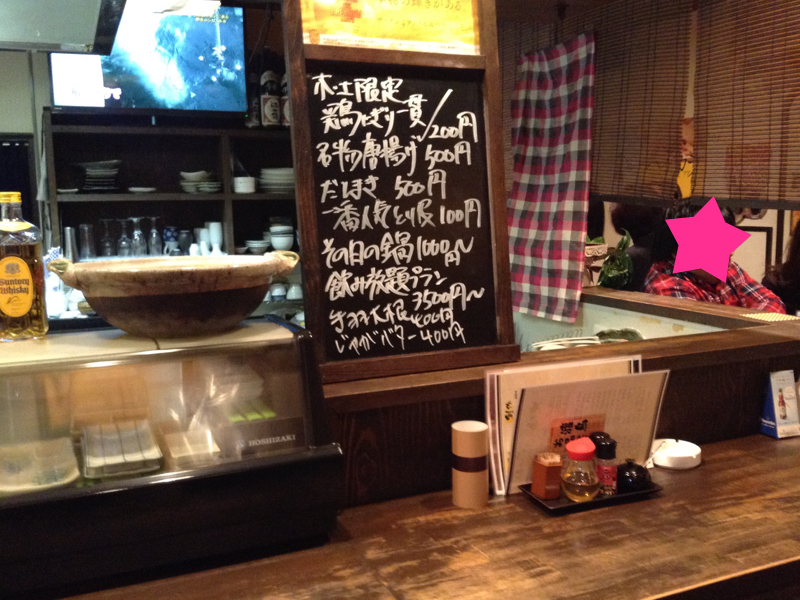 木・土限定
鶏にぎり一貫/200円
名物唐揚げ 500円
だしまき 500円
一番人気とり皮100円
その日の鍋1000円〜
飲み放題プラン
3500円〜
手羽大根 400円
じゃがバター400円
HOSHIZAKI
SUNTORY
Whisky